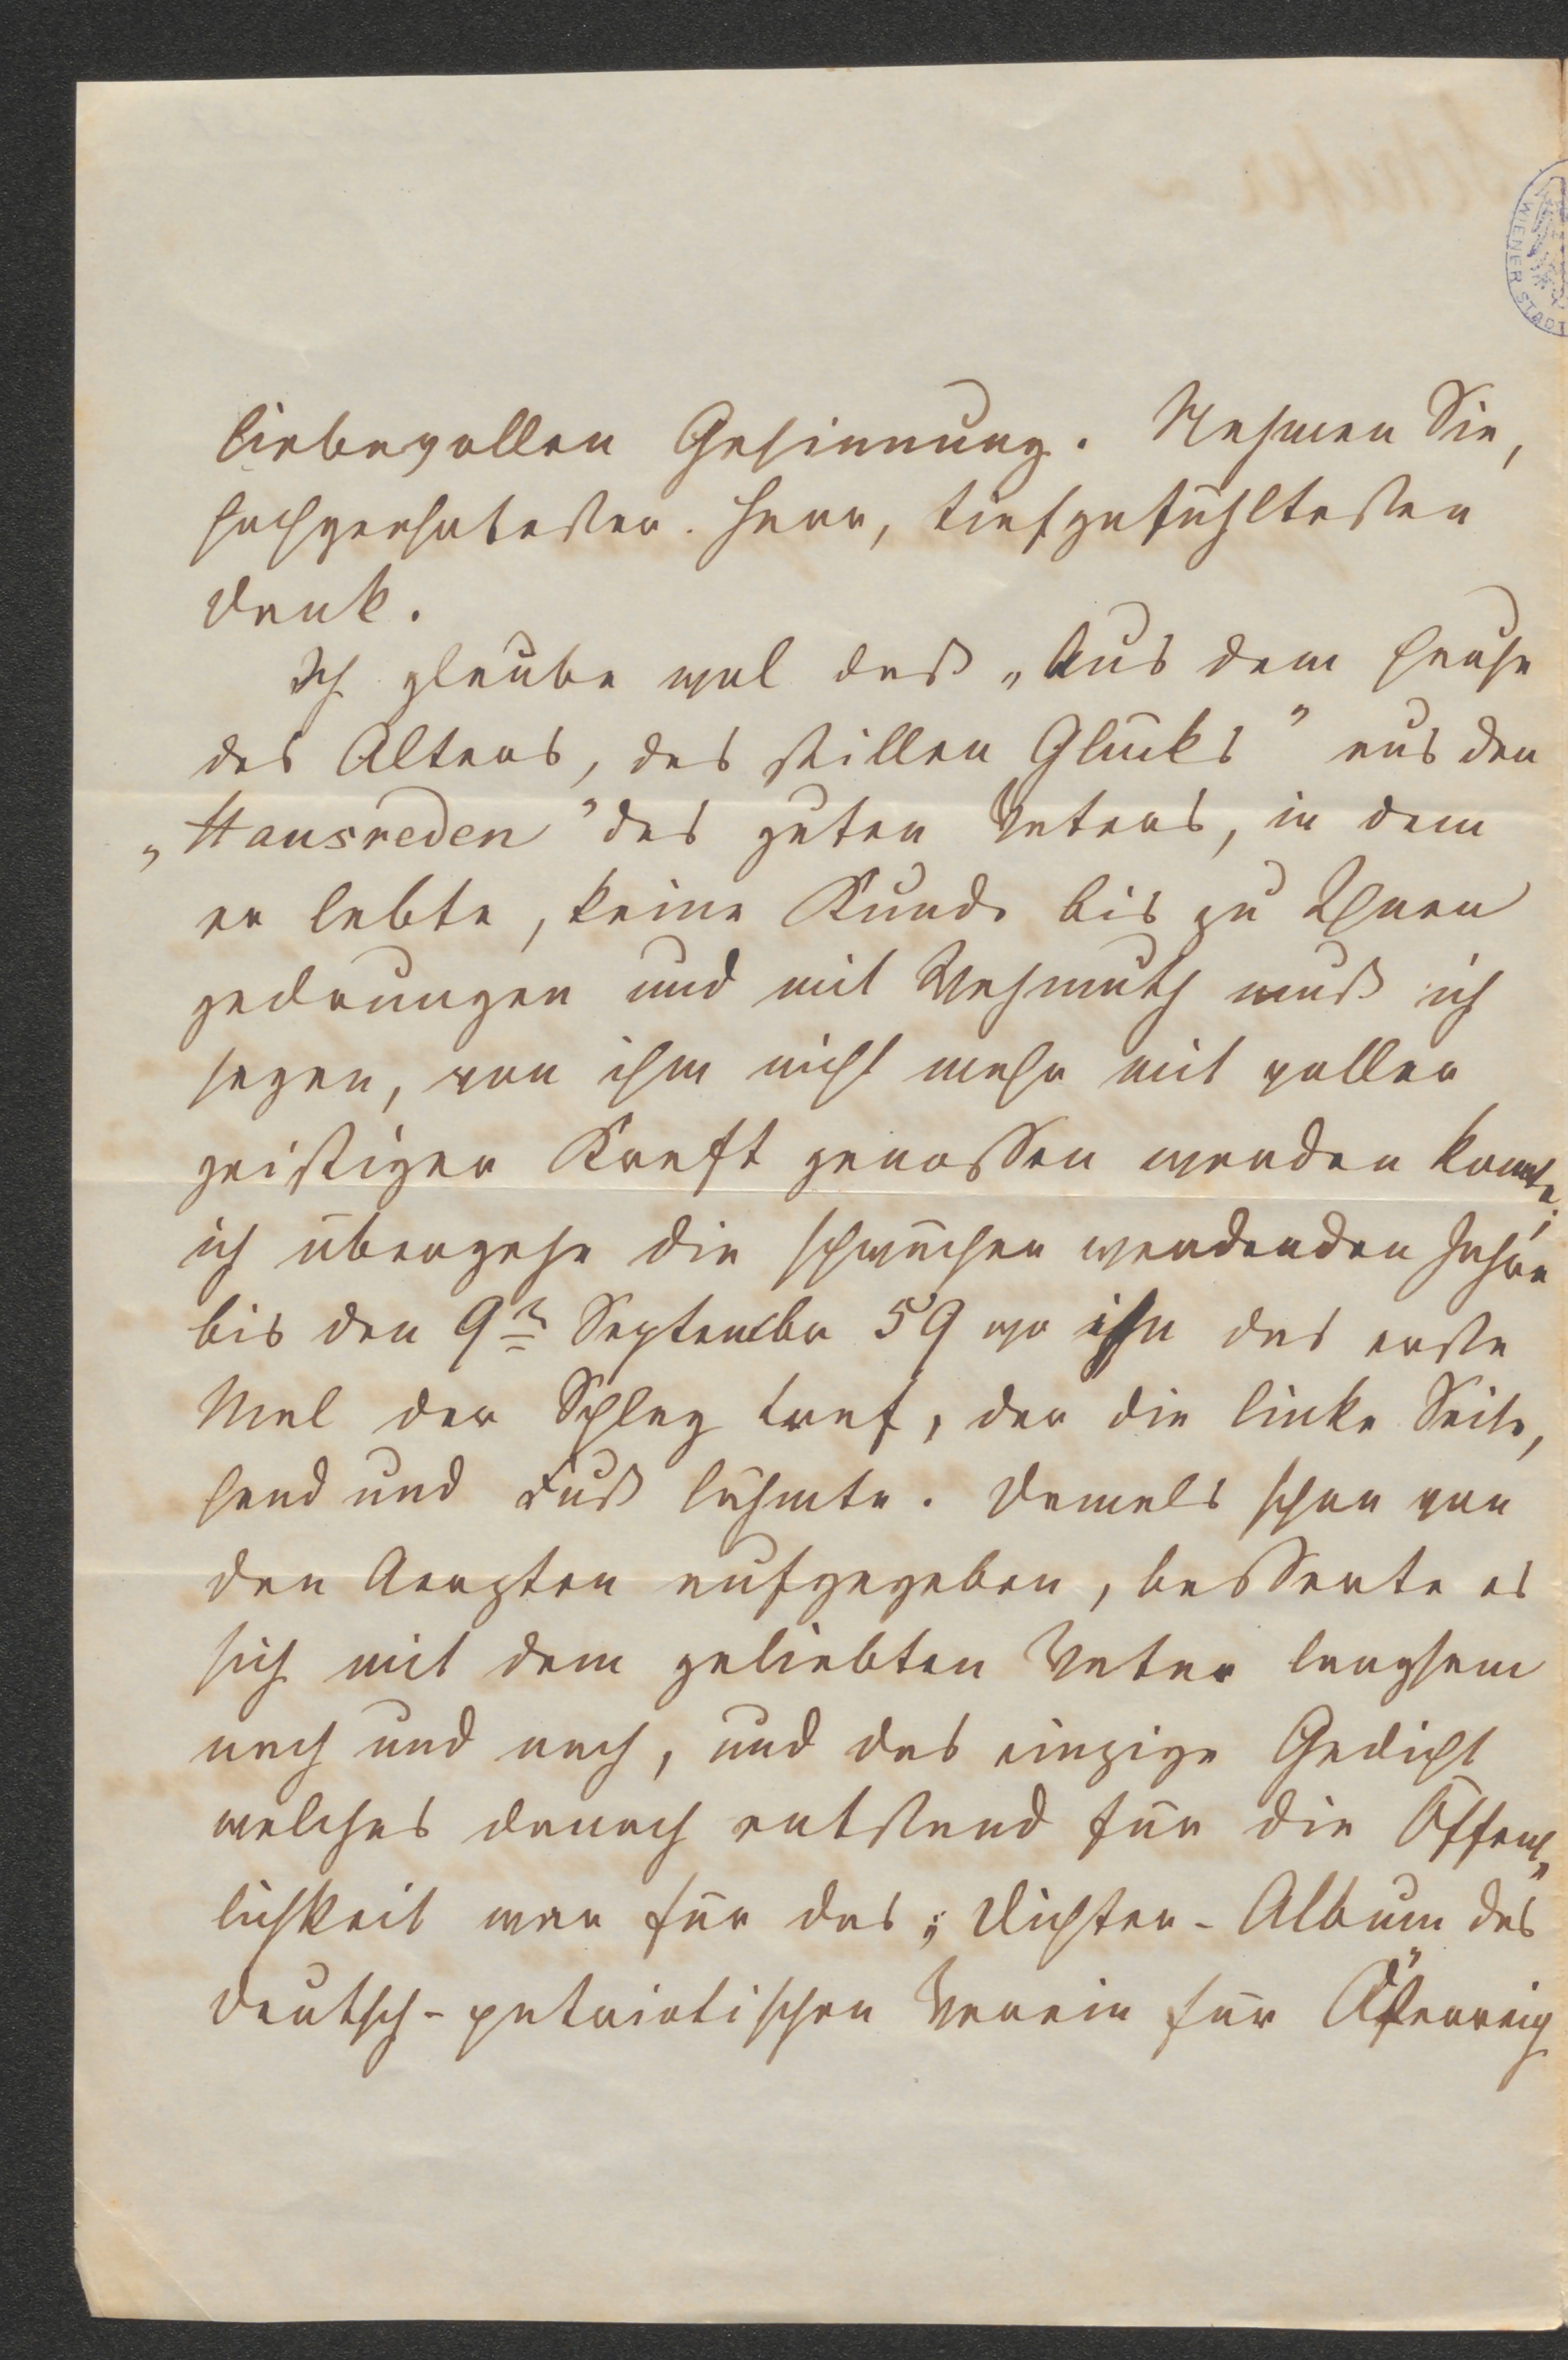 liebevollen Gesinnung. Nehmen Sie,
hochverehrtester Herr, tiefgefühltesten
Dank.
Ich glaube wol daß „Aus dem Hause
des Alters, des stillen Glücks" aus den
„Hausreden" des guten Vaters, in dem
er lebte, keine Kunde bis zu Ihnen
gedrungen und mit Wehmuth muß ich
sagen, von ihm nicht mehr mit voller
geistiger Kraft genossen werden konnte.
ich übergehe die schwächer werdenden Jahre
bis den 9n September 59 wo ihn das erste
Mal der Schlag traf, der die linke Seite,
Hand und Fuß lähmte. Damals schon von
den Aerzten aufgegeben, besserte es
sich mit dem geliebten Vater langsam
nach und nach, und das einzige Gedicht
welches danach entstand für die Öffent„
lichkeit war für das „Dichter-Album des
deutsch-patriotischen Verein für Österreich
WIENER STADT